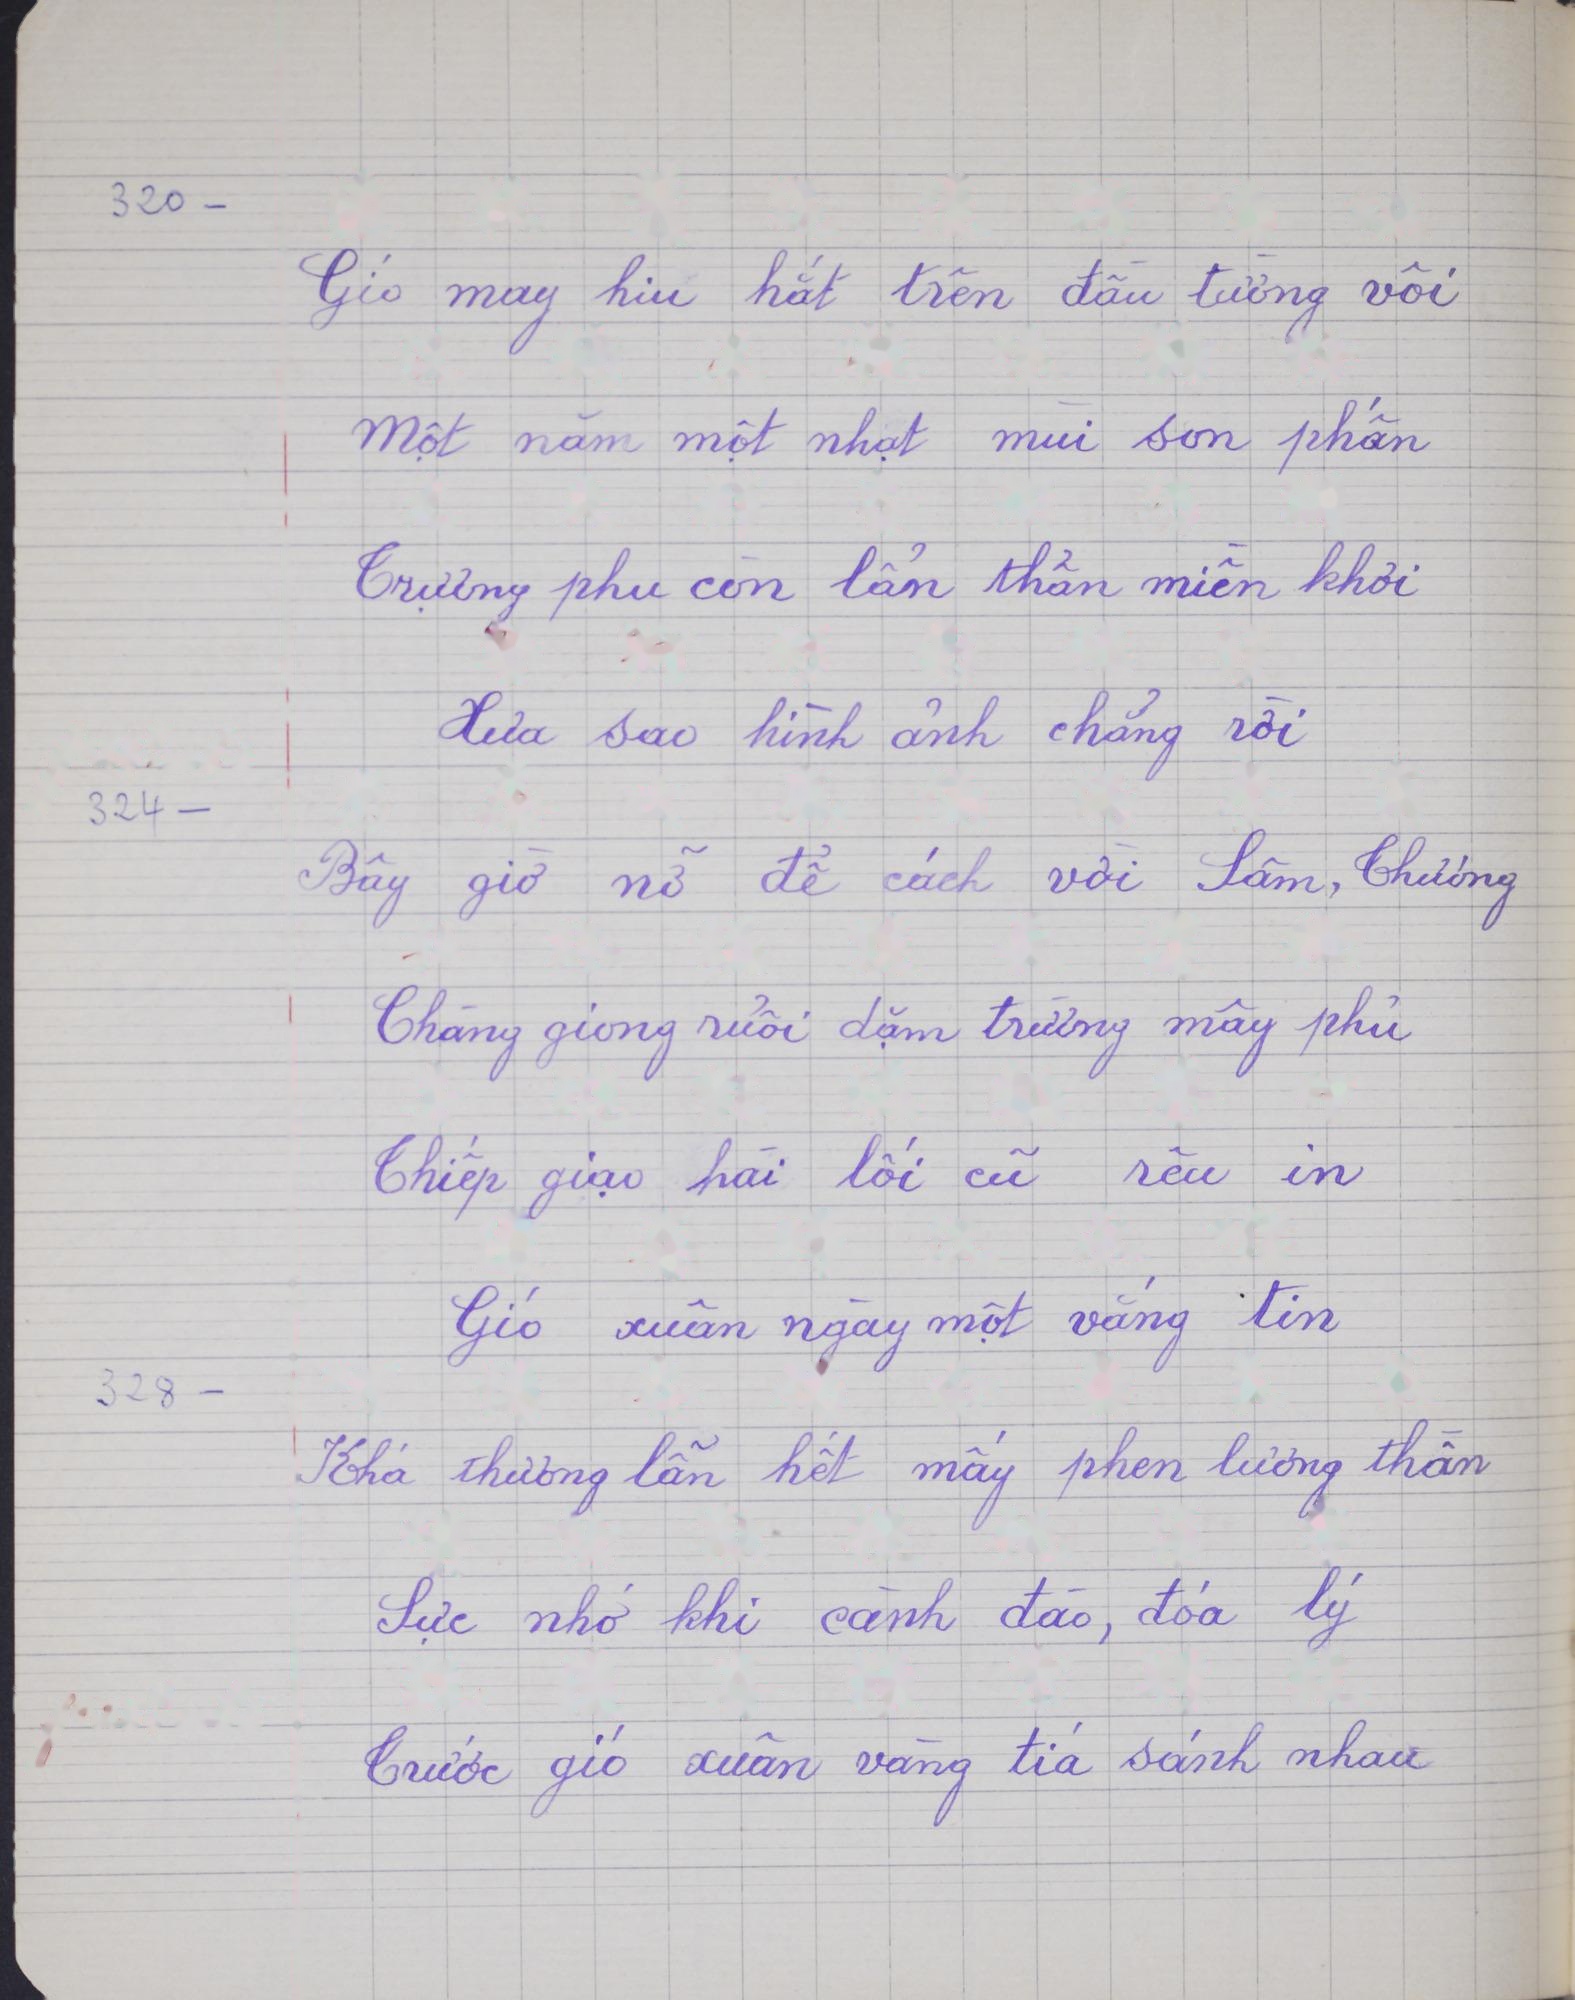 320 -
Gió may hiu hắt trên đầu tường vôi
Một năm một nhạt mùi son phấn
Trượng phu còn lẩn thẩn miền khơi
Xưa sao hình ảnh chẳng rời
324 -
Bây giờ nỡ để cách vời Sâm, Thương
Chàng giong ruổi dặm trường mây phủ
Thiếp giạo hài lối cũ rêu in
Gió xuân ngày một vắng tin
328 -
Khá thương lẫn hết mấy phen lương thần
Sực nhớ khi cành đào, đóa lý
Trước gió xuân vàng tía sánh nhau